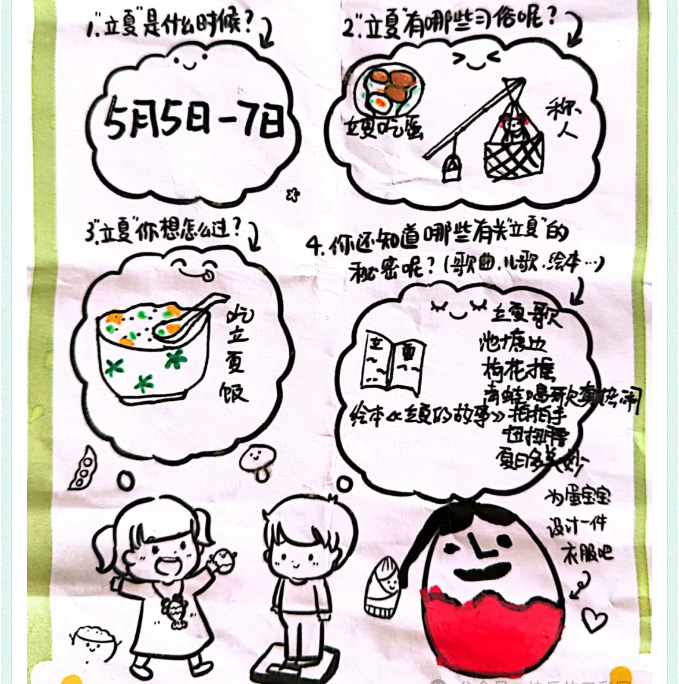 1.“立夏”是什么时候？
5月5日-7日
2.“立夏”有哪些习俗呢？
立夏吃蛋
称
人
3.“立夏”你想怎么过？
吃
立
夏
饭
4.你还知道哪些有关“立夏”的
秘密呢？(歌曲、儿歌、绘本…)
立夏歌
池塘边
梅花摇
青蛙唱歌
拍拍手
夏日多美妙
立夏
绘本《立夏的故事》
为蛋宝宝
设计一件
衣服吧